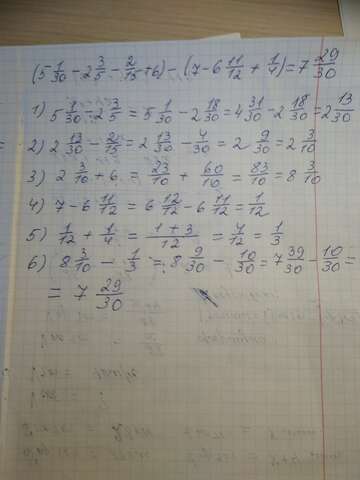 (5 1/30 - 2 3/5 - 2/15 + 6) - (7 - 6 11/12 + 1/4) = 7 29/30
1) 5 1/30 - 2 3/5 = 5 1/30 - 2 18/30 = 4 31/30 - 2 18/30 = 2 13/30
2) 2 13/30 - 2/15 = 2 13/30 - 4/30 = 2 9/30 = 2 3/10
3) 2 3/10 + 6 = 23/10 + 60/10 = 83/10 = 8 3/10
4) 7 - 6 11/12 = 6 12/12 - 6 11/12 = 1/12
5) 1/12 + 1/4 = 1+3/12 = 4/12 = 1/3
6) 8 3/10 - 1/3 = 8 9/30 - 10/30 = 7 39/30 - 10/30 =
= 7 29/30